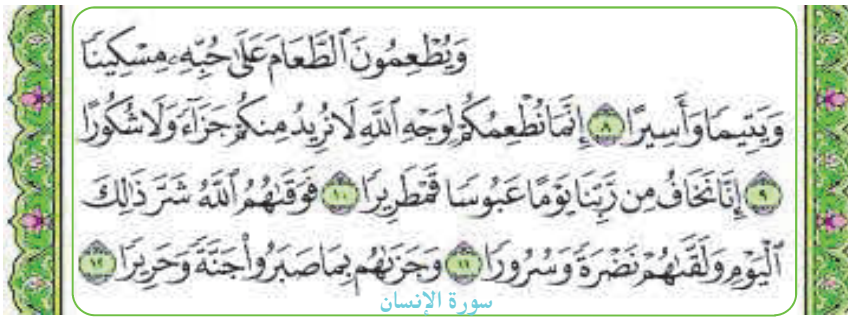 وَيُطۡعِمُونَ ٱلطَّعَامَ عَلَىٰ حُبِّهِۦ مِسۡكِينٗا
وَيَتِيمٗا وَأَسِيرًا ٨ إِنَّمَا نُطۡعِمُكُمۡ لِوَجۡهِ ٱللَّهِ لَا نُرِيدُ مِنكُمۡ جَزَآءٗ وَلَا شُكُورًا
٩ إِنَّا نَخَافُ مِن رَّبِّنَا يَوۡمًا عَبُوسٗا قَمۡطَرِيرٗا ١٠ فَوَقَىٰهُمُ ٱللَّهُ شَرَّ ذَٰلِكَ
ٱلۡيَوۡمِ وَلَقَّىٰهُمۡ نَضۡرَةٗ وَسُرُورٗا ١١ وَجَزَىٰهُم بِمَا صَبَرُواْ جَنَّةٗ وَحَرِيرٗا ١٢
سورة الإنسان